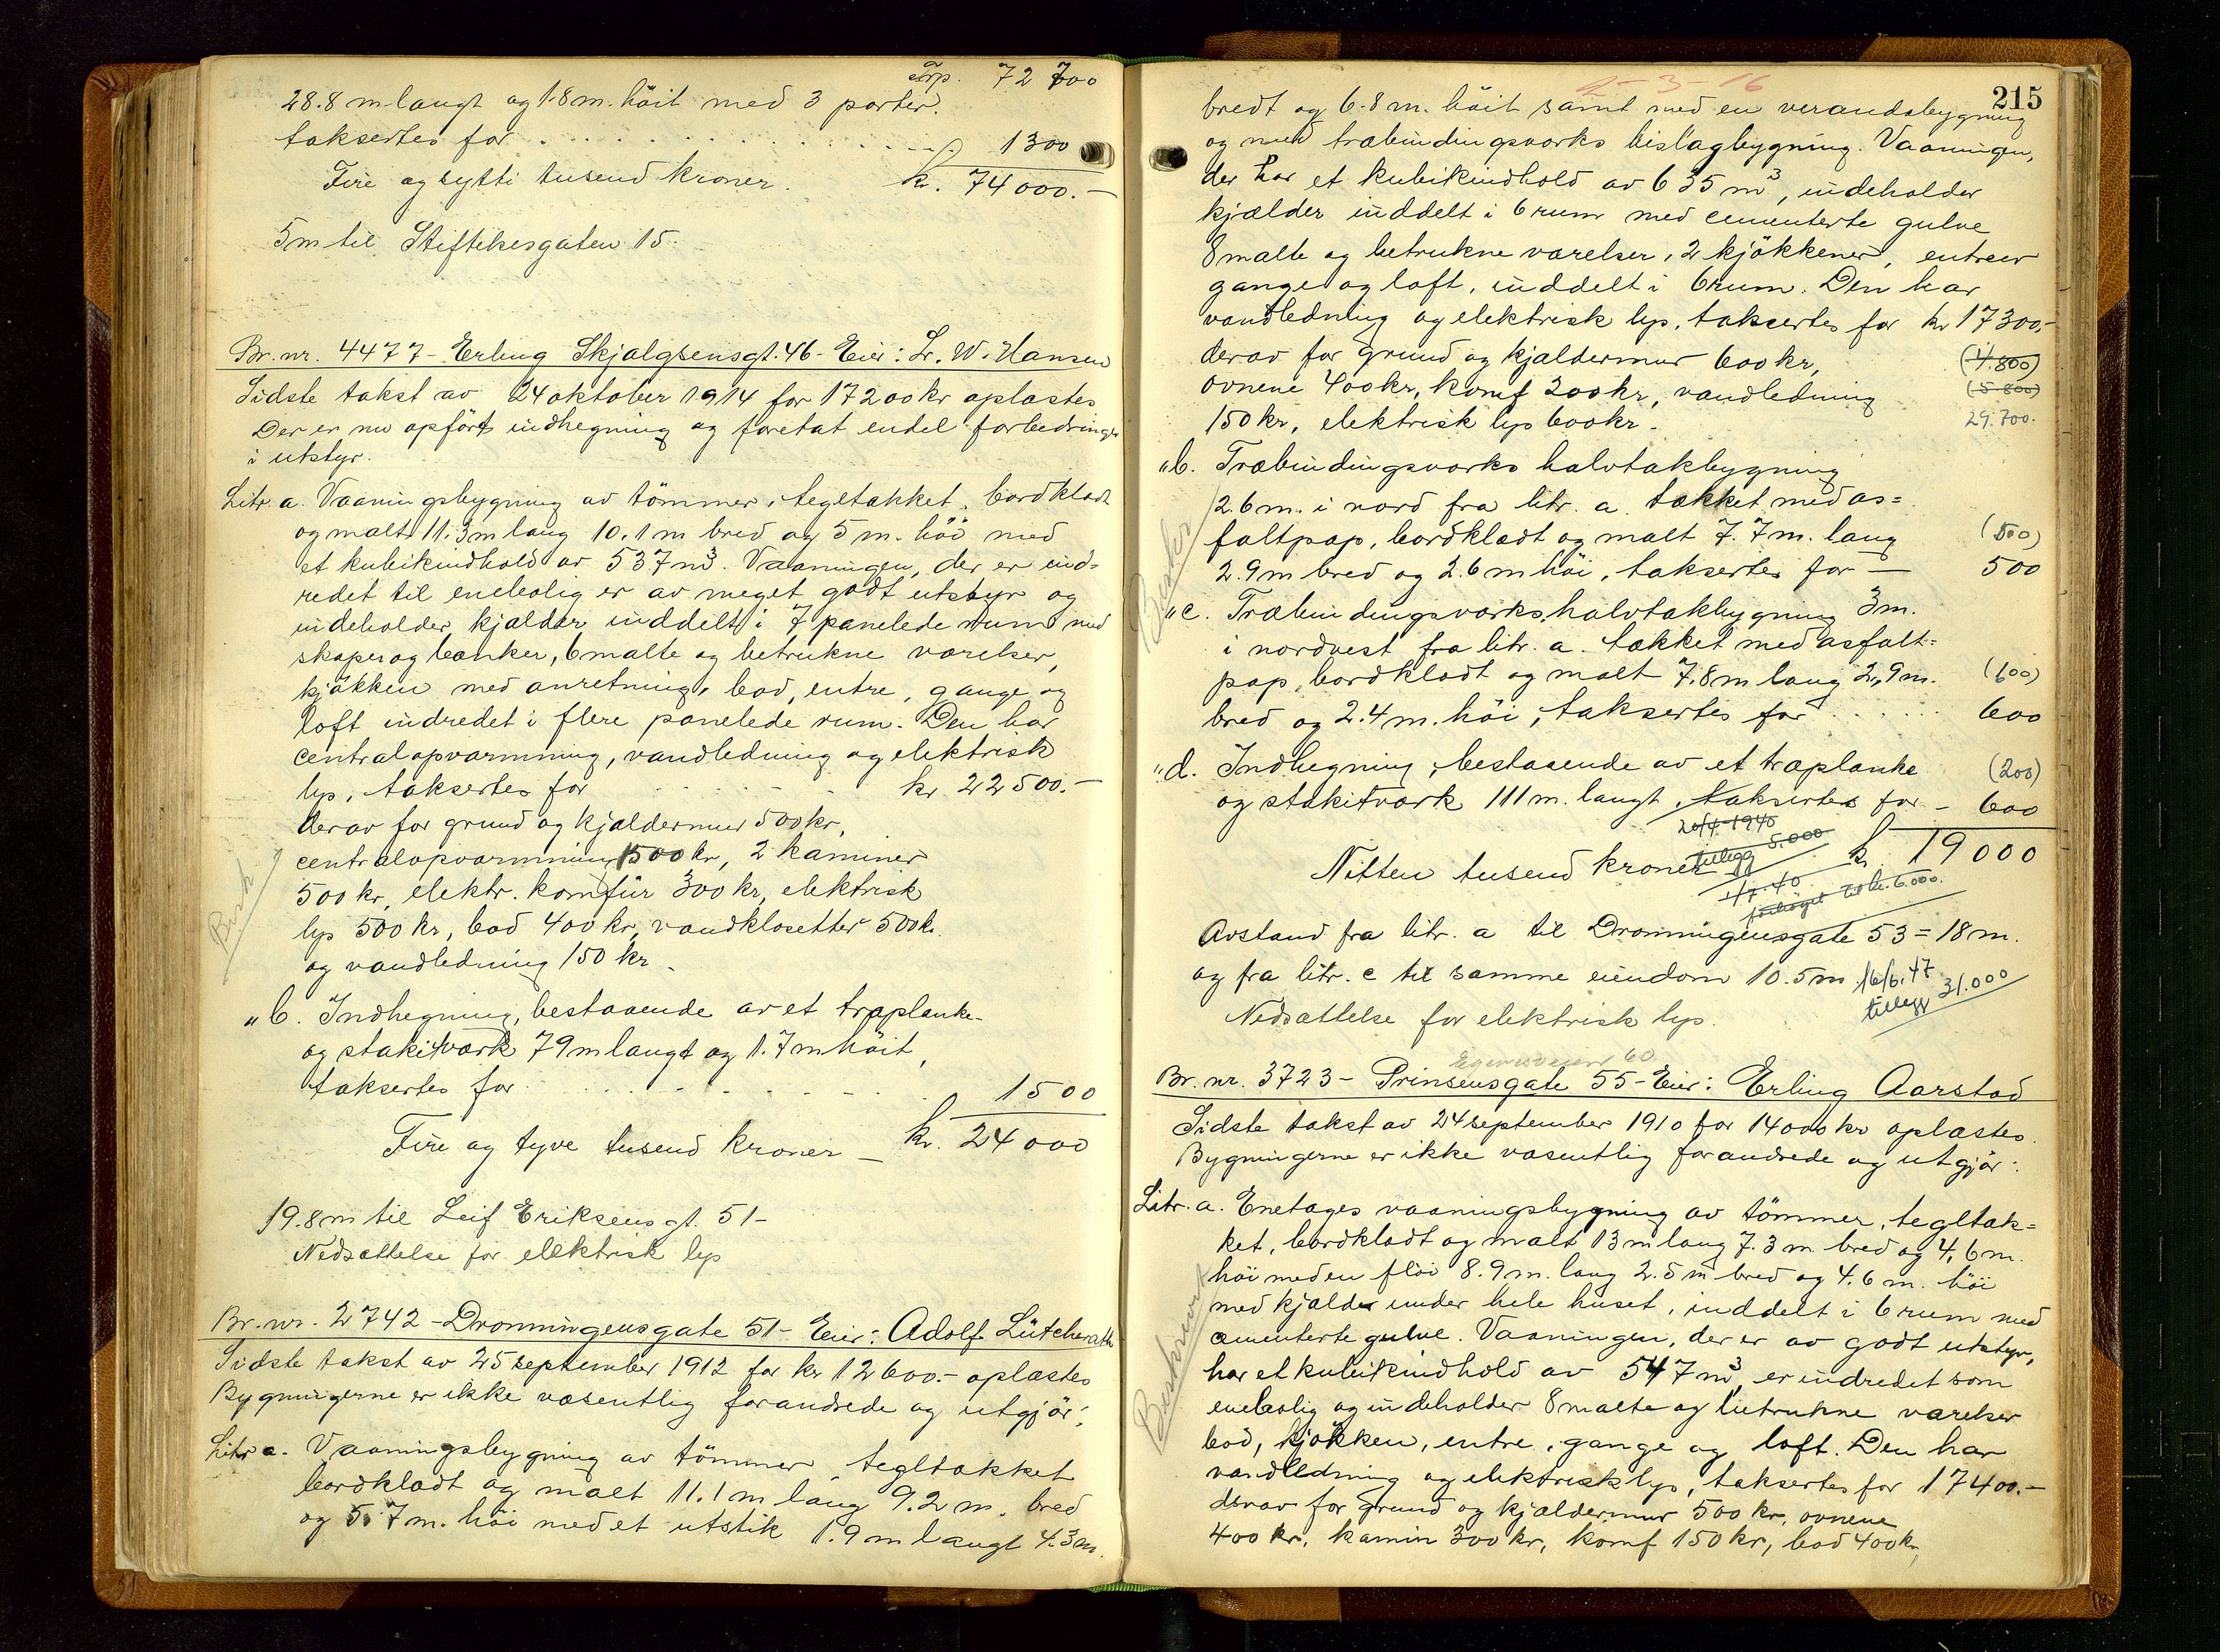 Trp. 72 700
28.8 m langt og 1.8 m. höit med 3 porter.
taksertes for . . . . . . . . . 1300
Fire og sytti tusend kroner. kr. 74000.-
5 m til Stiftelsesgaten 15.
Br. nr. 4477 - Erling Skjalgsensgt. 46 - Eier: Lr. W. Hansen
Sidste takst av 24 oktober 1914 for 17200 kr oplæstes
Der er nu opført indhegning og foretat endel forbedringer
i utstyr.
Litr. a. Vaaningsbygning av tömmer, tegltakket, bordklædt
og malt 11.3 m lang 10.1 m bred og 5 m. höi med
et kubikindhold av 537 m³. Vaaningen, der er ind=
redet til enebolig er av meget godt utstyr og
indeholder kjælder inddelt i 7 panelede rum med
skaper og bænker, 6 malte og betrukne værelser,
kjökken med anretning, bad, entre, gange og
loft indredet i flere panelede rum. Den har
centralopvarmning, vandledning og elektrisk
lys, taksertes for . . . . kr 22500.-
derav for grund og kjældermur 500 kr,
centralopvarmning 1500 kr, 2 kaminer
500 kr, elektr. komfür 300 kr, elektrisk
lys 500 kr, bad 400 kr, vandklosetter 500 kr.
og vandledning 150 kr.
Besk
„ b. Indhegning, bestaaende av et træplanke-
og stakitværk 79 m langt og 1.7 m höit,
taksertes for . . . . . . . . 1500
Fire og tyve tusend kroner - kr. 24 000
19.8 m til Leif Eriksens gt. 51-
Nedsættelse for elektrisk lys
Br. nr. 2742 - Dronningensgate 51 - Eier: Adolf Lütcherath
Sidste takst av 25 september 1912 for kr 12600.- oplæstes
Bygningerne er ikke væsentlig forandrede og utgjör:
Litr a. Vaaningsbygning av tömmer, tegltakket
bordklædt og malt 11.1 m lang 9.2 m. bred
og 5.7 m. höi med et utstik 1.9 m langt 4.3 m.
2-3-16
215
bredt og 6.8 m. höit samt med en verandabygning
og med træbindingsværks bislagbygning. Vaaningen,
der har et kubikindhold av 635 m³, indeholder
kjælder inddelt i 6 rum med cementerte gulve
8 malte og betrukne værelser, 2 kjökkener, entreer
gange og loft, inddelt i 6 rum. Den har
vandledning og elektrisk lys, taksertes for kr 17300.-
derav for grund og kjældermur 600 kr, (4.800)
ovnene 400 kr, komf 200 kr, vandledning (5 800)
150 kr, elektrisk lys 600 kr. 29.700.
„ b. Træbindingsværks halvtakbygning
2.6 m. i nord fra litr. a. tækket med as=
faltpap, bordklædt og malt 7.7 m. lang (500)
2.9 m bred og 2.6 m höi, taksertes for — 500
Beskr
„ c. Træbindingsværks halvtakbygning 3 m.
i nordvest fra litr. a. tækket med asfalt=
pap, bordklædt og malt 7.8 m lang 2,9 m. (600)
bred og 2.4 m. höi, taksertes for . . . . . 600
„ d. Indhegning, bestaaende av et træplanke (200)
og stakitværk 111 m. langt, taksertes for - 600
20/4-1940
tillegg 5.000
Nitten tusend kroner kr. 19000
1/7.40
forhöget til kr. 6.000.
Avstand fra litr. a til Dronningensgate 53 = 18 m.
og fra litr. c til samme eiendom 10.5 m
16/6.47
tillegg 31.000
Nedsættelse for elektrisk lys.
Egenesveien 60
Br. nr. 3723 - Prinsensgate 55 - Eier: Erling Aarstad
Sidste takst av 24 september 1910 for 14000 kr oplæstes.
Bygningerne er ikke væsentlig forandrede og utgjör:
Litr. a. Enetages vaaningsbygning av tömmer, tegltæk=
ket, bordklædt og malt 13 m lang 7.3 m. bred og 4,6 m.
höi med en flöi 8.9 m. lang 2.5 m bred og 4.6 m. höi
med kjælder under hele huset, inddelt i 6 rum med
cementerte gulve. Vaaningen, der er av godt utstyr,
har et kubikindhold av 547 m³, er indredet som
enebolig og indeholder 8 malte og betrukne værelser
bad, kjökken, entre, gange og loft. Den har
vandledning og elektrisk lys, taksertes for 17400.-
derav for grund og kjældermur 500 kr, ovnene
400 kr, kamin 300 kr, komf 150 kr, bad 400 kr,
Beskrevet